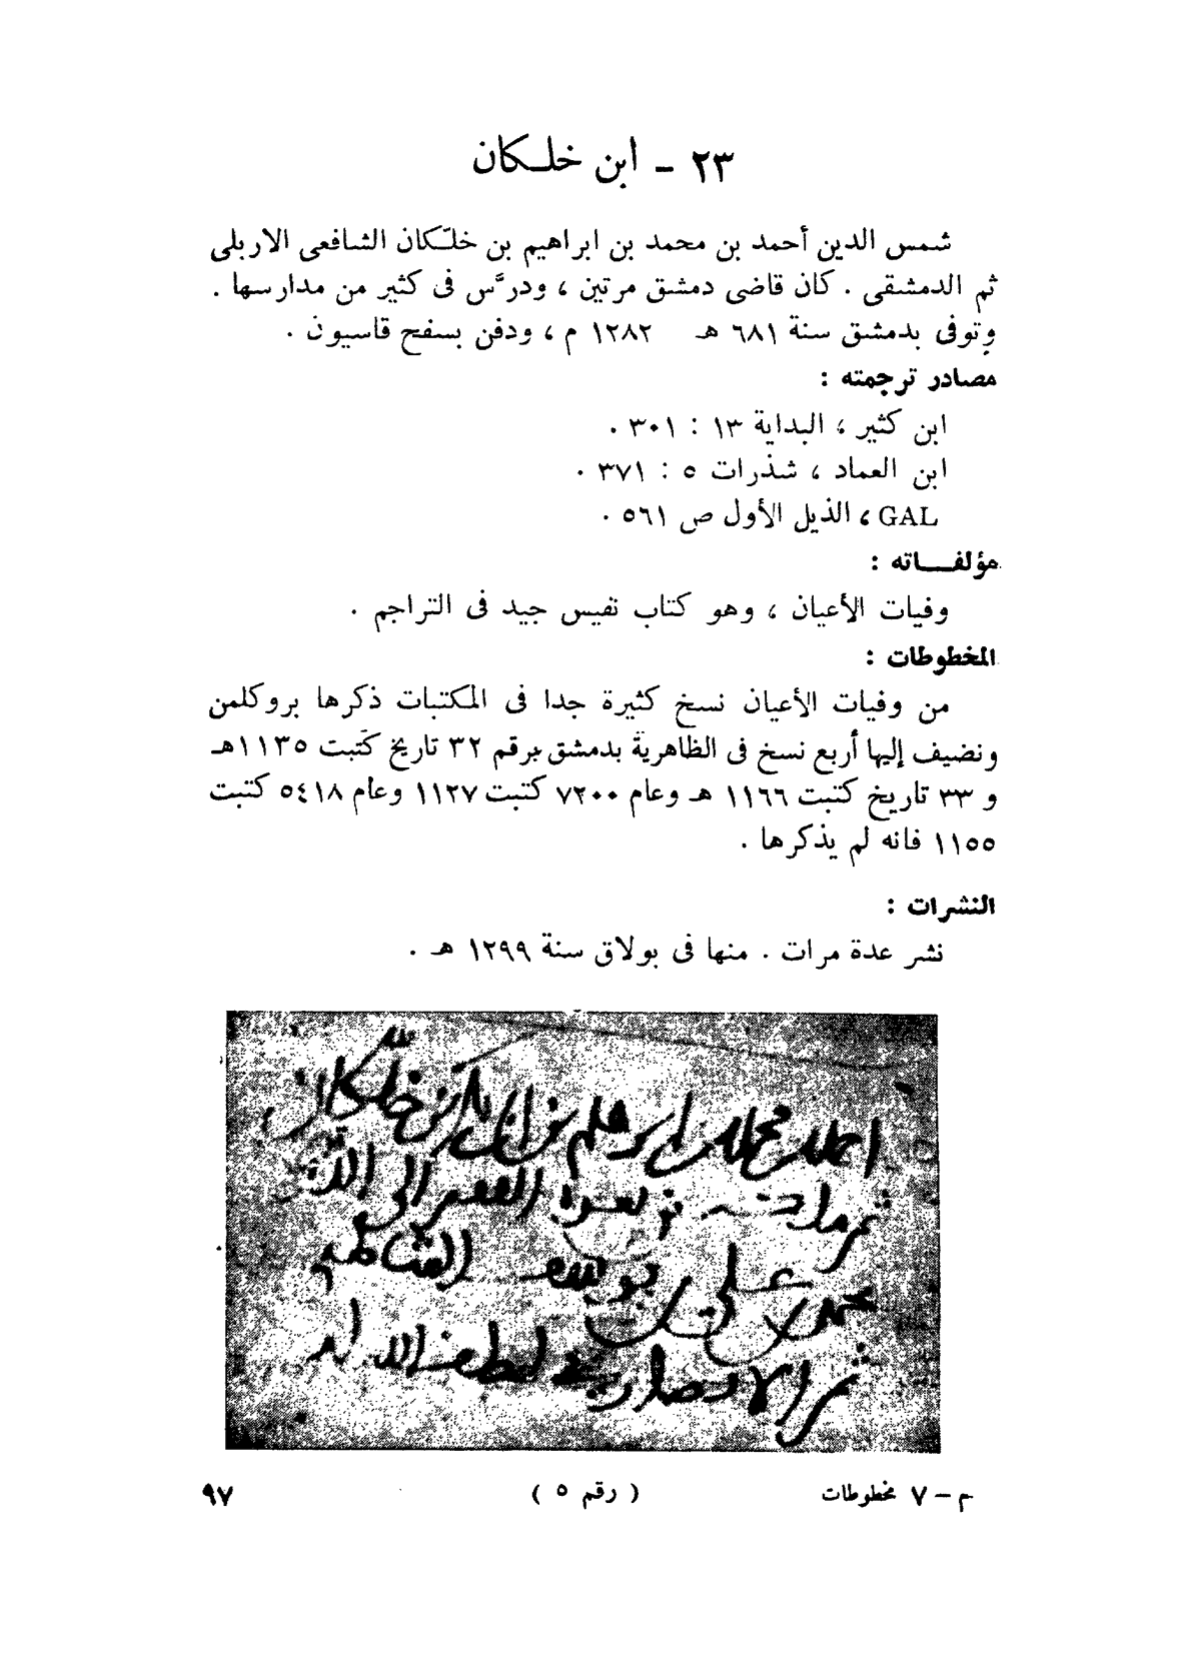 ٢٣ - ابن خلـكان
شمس الدين أحمد بن محمد بن ابراهيم بن خلّـكان الشافعى الاربلى
ثم الدمشقى . كان قاضى دمشق مرتين ، ودرَّس فى كثير من مدارسها .
وتوفى بدمشق سنة ٦٨١ هـ ١٢٨٢ م ، ودفن بسفح قاسيون .
مصادر ترجمته :
ابن كثير ، البداية ١٣ : ٣٠١ .
ابن العماد ، شذرات ٥ : ٣٧١ .
GAL ، الذيل الأول ص ٥٦١ .
مؤلفـــاته :
وفيات الأعيان ، وهو كتاب نفيس جيد فى التراجم .
المخطوطات :
من وفيات الأعيان نسخ كثيرة جدا فى المكتبات ذكرها بروكلمن
ونضيف إليها أربع نسخ فى الظاهرية بدمشق برقم ٣٢ تاريخ كتبت ١١٣٥هـ
و ٣٣ تاريخ كتبت ١١٦٦ هـ وعام ٧٢٠٠ كتبت ١١٢٧ وعام ٥٤١٨ كتبت
١١٥٥ فانه لم يذكرها .
النشرات :
نشر عدة مرات . منها فى بولاق سنة ١٢٩٩ هـ .
احمد بن محمد بن ابرهيم بن ابى بكر بن خلّكان
الفقير الى الله
محمد بن على بن يوسف الشاطبى
الانصارى لطف الله به
م - ٧ مخطوطات
( رقم ٥ )
٩٧